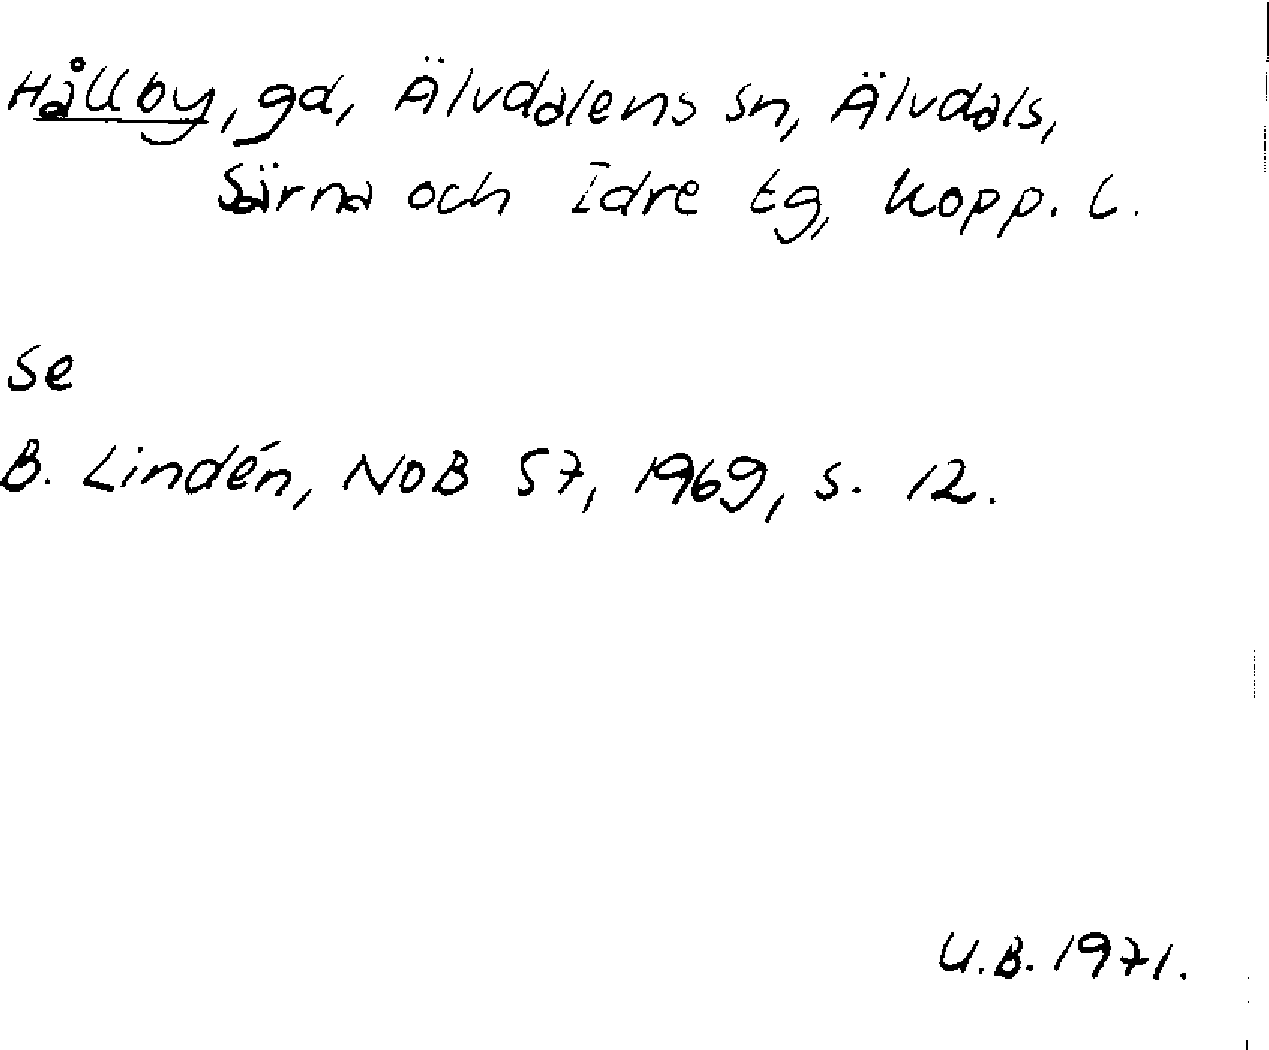 Hållby, gd, Älvdalens sn, Älvdals,
Särna och Idre tg, Kopp. l.
Se
B. Lindén, NoB 57, 1969, s. 12.
U.B. 1971.